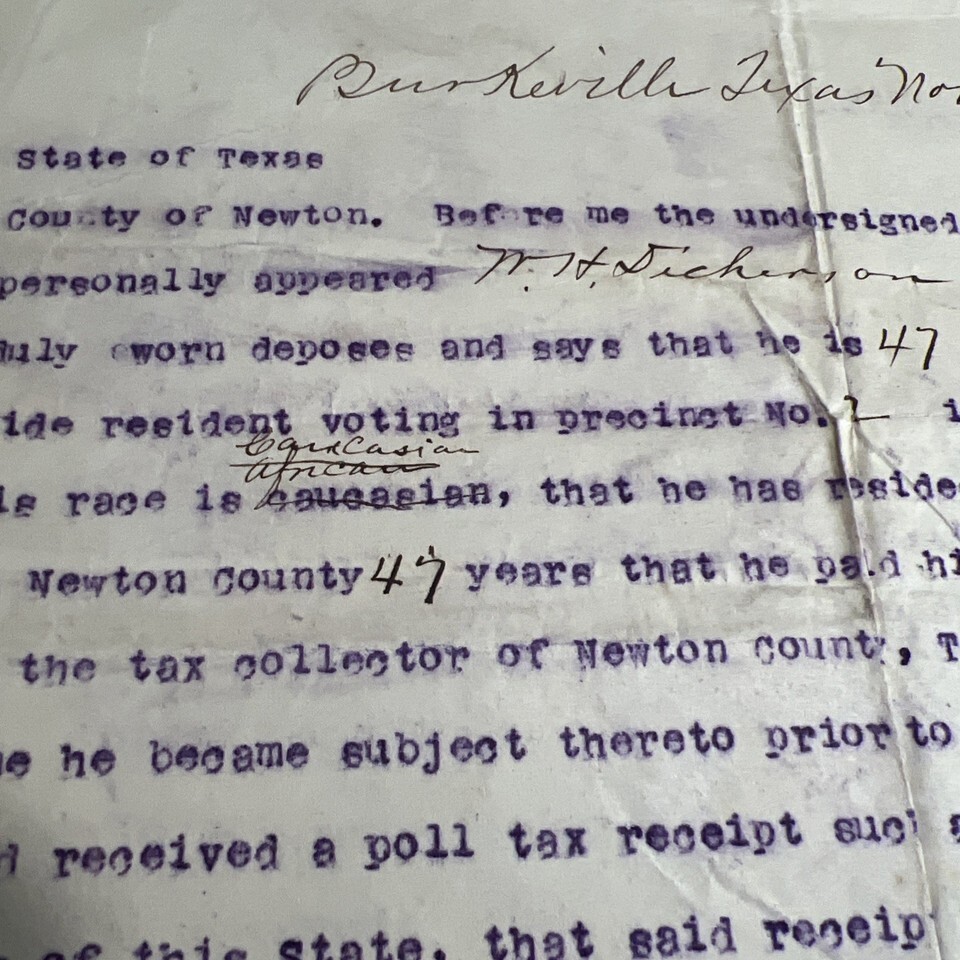 Burkeville Texas Nov
State of Texas
County of Newton. Before me the undersigned
personally appeared W. H. Dickerson
duly sworn deposes and says that he is 47
ide resident voting in precinct No. 2 i
Caucasian
African
is race is caucasian, that he has reside
Newton county 47 years that he paid hi
the tax collector of Newton county, T
he became subject thereto prior to
d received a poll tax receipt such a
of this state, that said receip